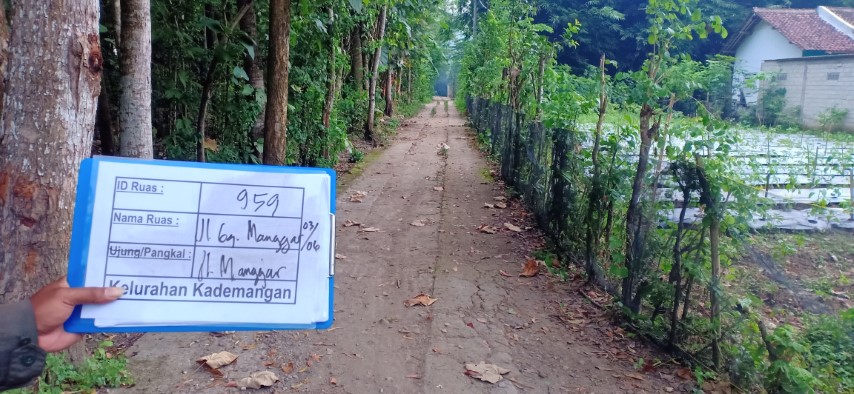 ID Ruas : 959
Nama Ruas : Jl Gg. Manggar 03/06
Ujung/Pangkal : Jl. Manggar
Kelurahan Kademangan